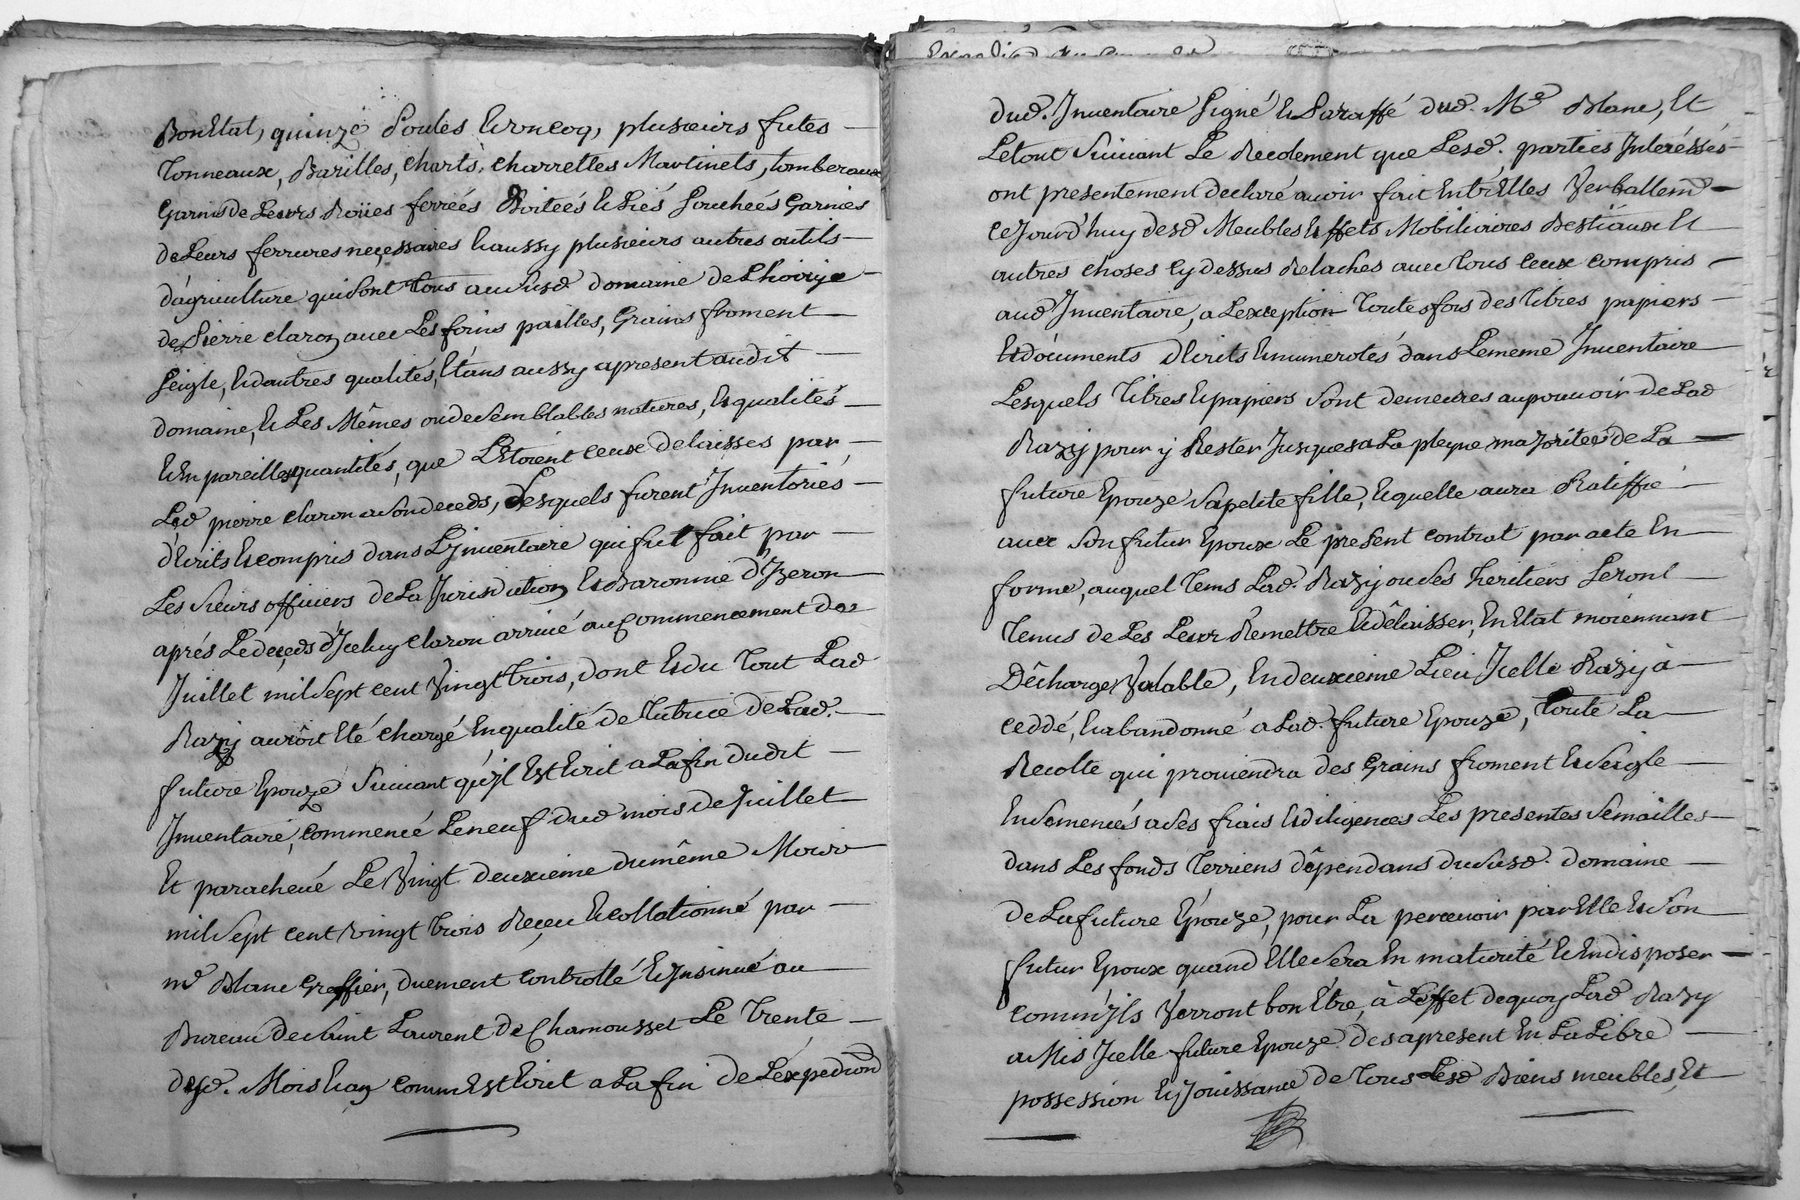 Bon Etat, quinze Poules & un coq, plusieurs futes
Tonneaux, Barilles, charts, charrettes Martinets, tomberaux
Garnis de Leurs Roües ferrées & Liés Garnies
de Leurs ferrures neçessaires & aussy plusieurs autres outils
d'agriculture qui sont tous au susd domaine de
de Pierre claron avec Les foins pailles, Grains froment
seigle, & d'autres qualités, Etans aussy apresent audit
domaine, & Les Mêmes ou de semblables natures, & qualités
& En pareilles quantités, que L'Etoient ceux delaissés par
Led pierre claron a son deceds, Lesquels furent Inventoriés
d'Ecrits & compris dans L'Jnventaire qui fut fait par
Les sieurs officiers de La Jurisdiction & Baronnie d'Yzeron
aprés Le deceds d'Jceluy claron arrivé au Commencement de
Juillet mil sept cent Vingt trois, dont & du Tout Lad
Razy auroit Eté chargé En qualité de Tutrice de Lad.
future Epouze suivant qu'jl Est Ecrit a La fin dudit
Jnventaire, commencé Le neuf dud mois de Juillet
Et paracheué Le Vingt deuxieme du même Mois
mil sept cent vingt trois Reçeu & collationné par
me Blanc Greffier, duement controllé & Jnsinué au
Bureau de saint Laurent de Chamousset Le Trente
dud. Mois & an comm Est Ecrit a La fin de L'éxpedition
dud. Jnventaire signé & Paraffé dud. Me Blanc, Et
Le tout suivant Le Recolement que Lesd. parties Interéssés
ont presentement declaré avoir fait Entr'Elles Verballemt
ce Jourd'huy desd Meubles Effets Mobiliaires Bestiaux Et
autres choses cy dessus Relachés avec tous ceux compris
aud Jnventaire, a L'exception Toutesfois des titres papiers
& documents d'Ecrits & numerotés dans Le meme Jnventaire
Lesquels Titres & papiers sont demeurés au pouvoir de Lad
Razy pour y Rester Jusques a La pleyne majoritée de La
future Epouze sa petite fille, Lequelle aura Ratiffié
avec son futur Epoux Le present contrat par acte En
forme, auquel Tems Lad. Razy ou ses heritiers seront
Tenus de Les Leur Remettre & délaisser, En Etat moiennant
Décharge Valable, En deuxieme Lieu Jcelle Razy à
ceddé, & abandonné a Lad. future Epouze, Toute La
Recolte qui proviendra des Grains froment & seigle
Ensemencés a ses frais & diligences Les presentes semailles
dans Les fonds Terriens dépendans du susd. domaine
de La future Epouze, pour La percevoir par Elle & son
futur Epoux quand Elle sera En maturité & En disposer
comm'jls Verront bon Etre, à L'effet de quoy Lad Razy
a Mis Jcelle future Epouze dès apresent En La Libre
possession & Jouissance de Tous Lesd Biens meubles, Et